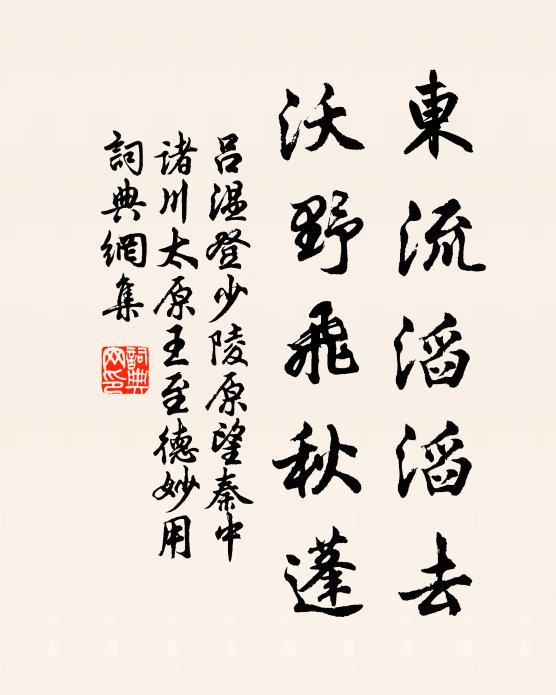 東流滔滔去
沃野飛秋蓬
呂溫登少陵原望秦中
諸川太原王至德妙用
詞典網集
詞典網印